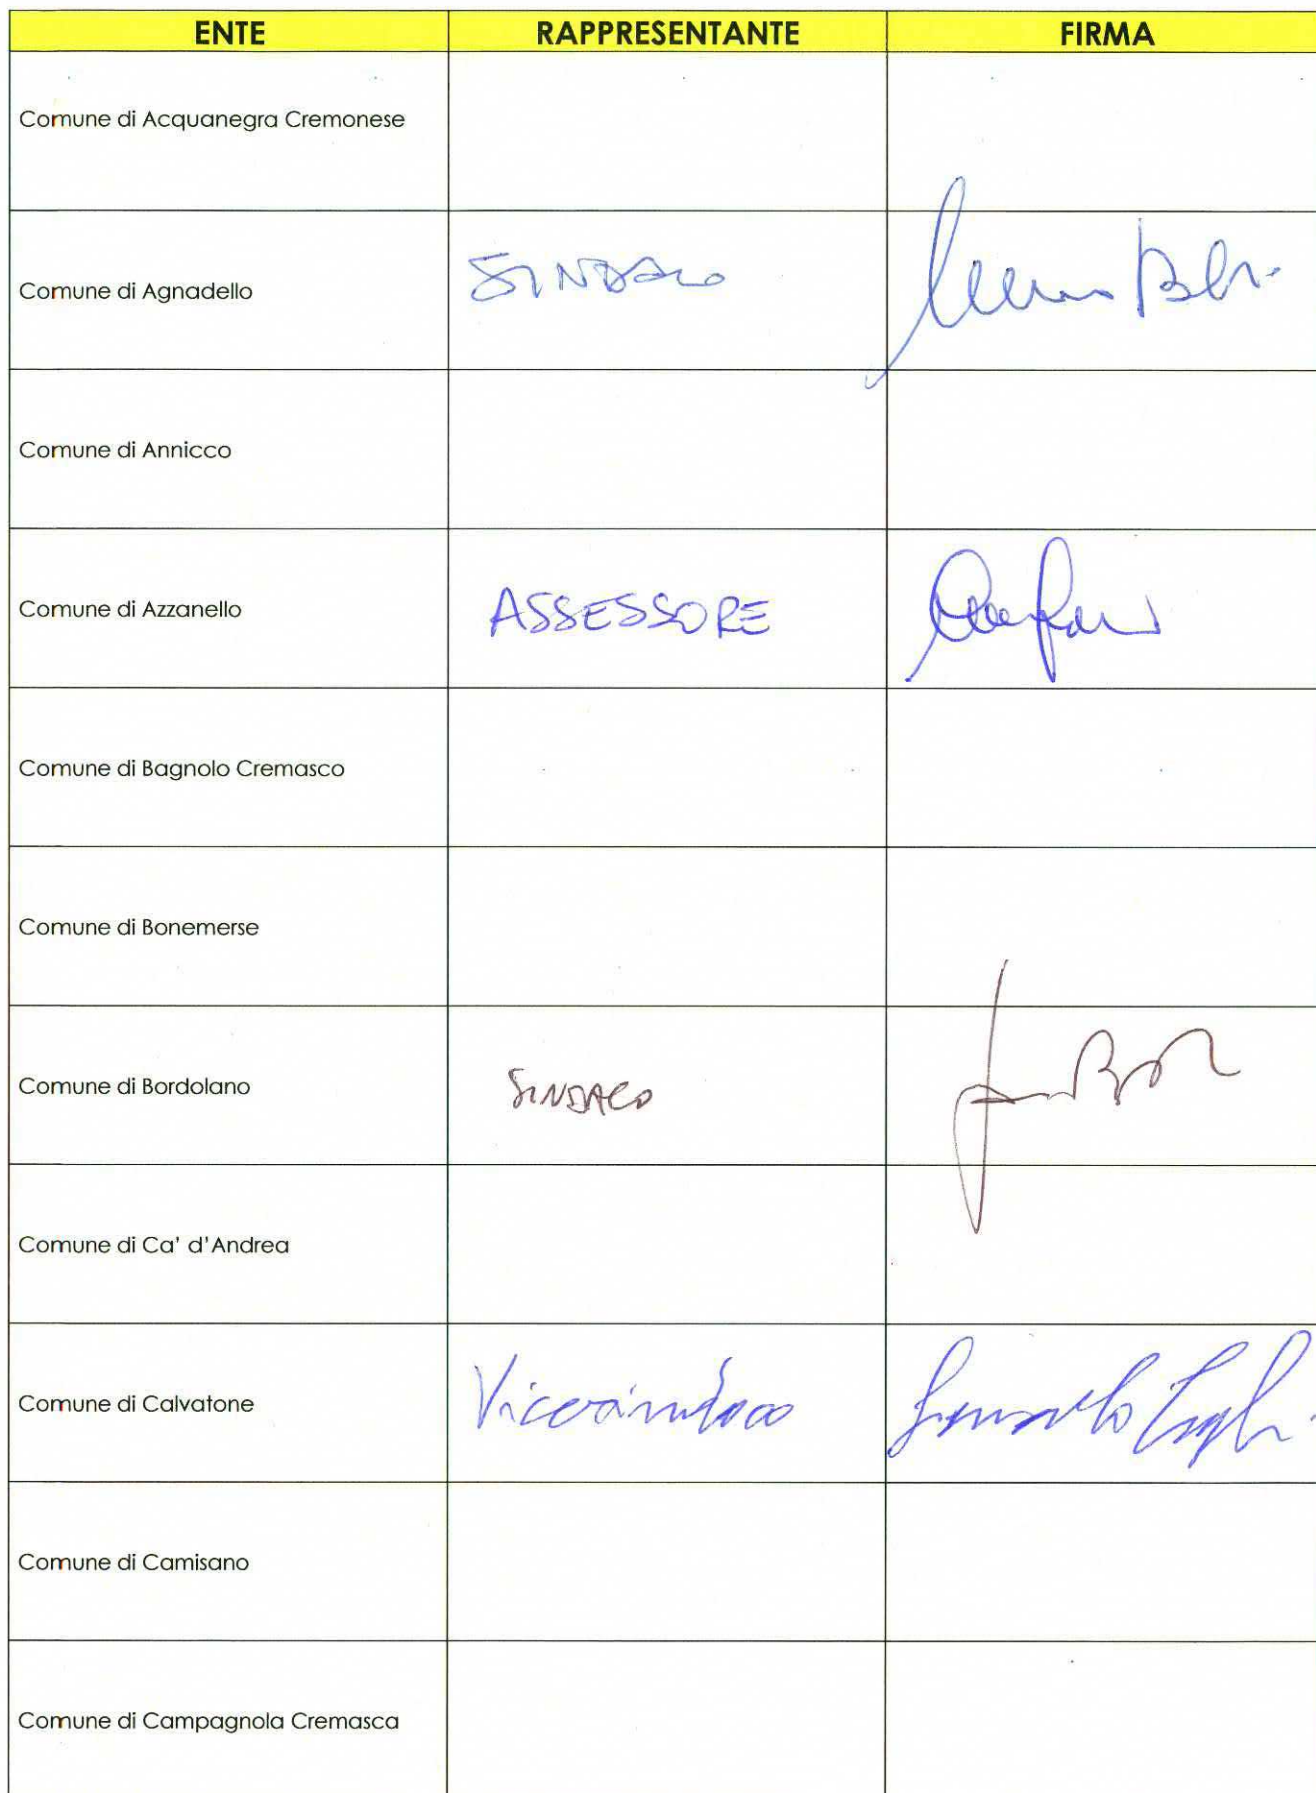 ENTE RAPPRESENTANTE FIRMA
Comune di Acquanegra Cremonese
Comune di Agnadello SINDACO
Comune di Annicco
Comune di Azzanello ASSESSORE
Comune di Bagnolo Cremasco
Comune di Bonemerse
Comune di Bordolano SINDACO
Comune di Ca' d'Andrea
Comune di Calvatone Vicesindaco
Comune di Camisano
Comune di Campagnola Cremasca